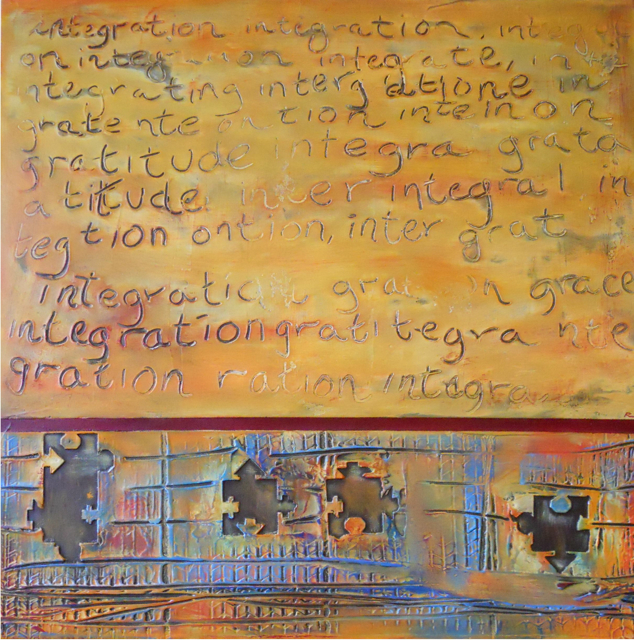 integration integration, integ
on integ non integrate, in
integrating interg atione in
grate nte on tion inte in on
gratitude integra grata
a titude inter integral in
teg tion ontion, inter grat
integratio gra in grace
integration gratitegra nte
gration ration integra